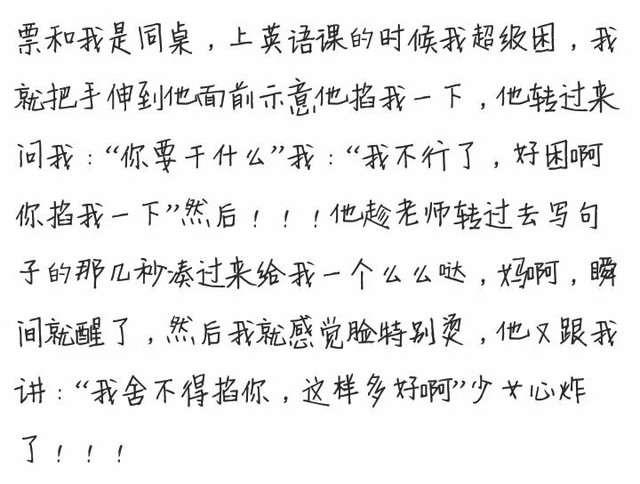 票和我是同桌，上英语课的时候我超级困，我
就把手伸到他面前示意他掐我一下，他转过来
问我：“你要干什么”我：“我不行了，好困啊
你掐我一下”然后！！！他趁老师转过去写句
子的那几秒凑过来给我一个么么哒，妈啊，瞬
间就醒了，然后我就感觉脸特别烫，他又跟我
讲：“我舍不得掐你，这样多好啊”少女心炸
了！！！